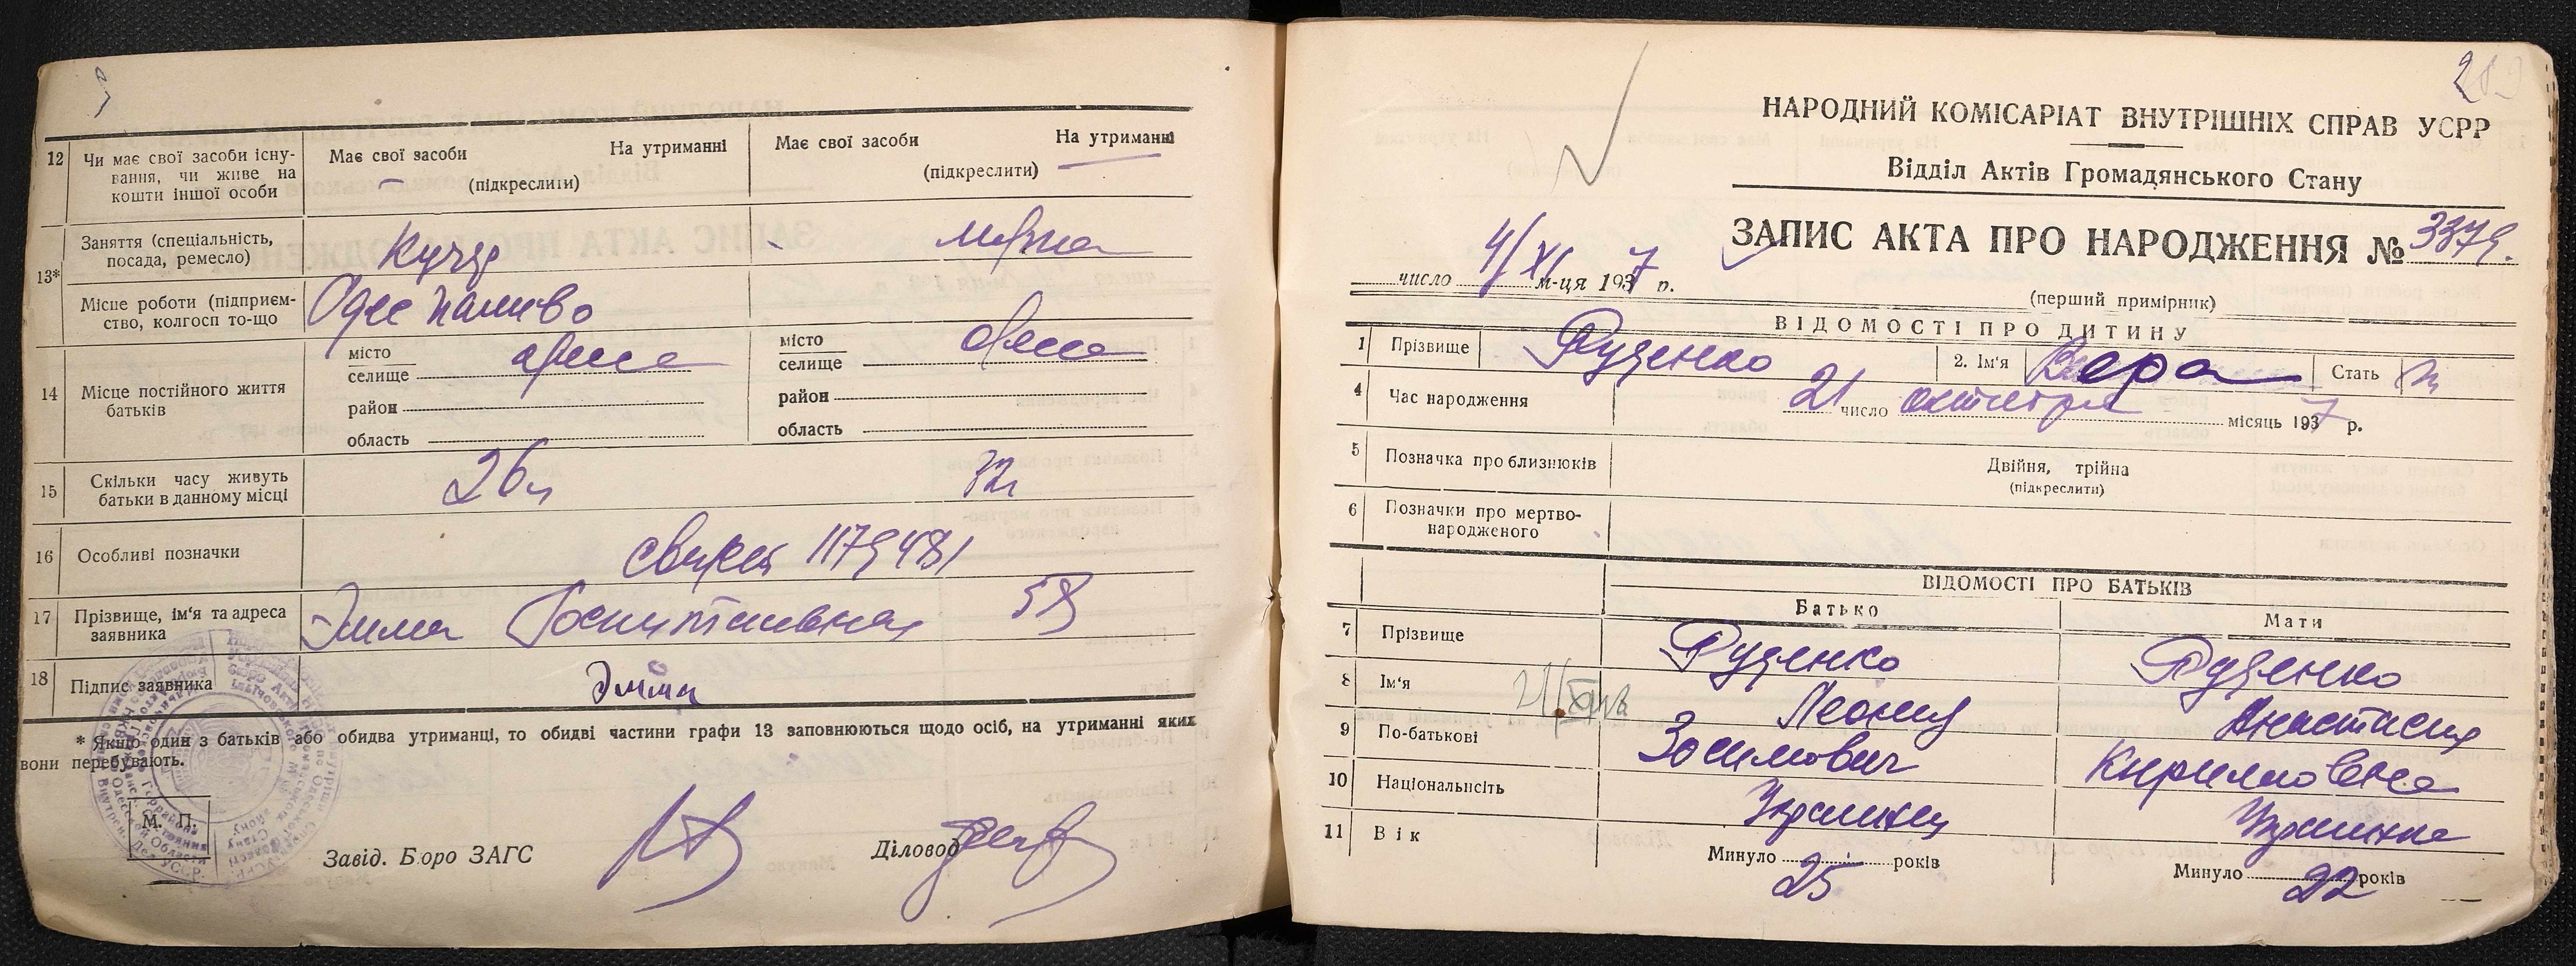 12 Чи має свої засоби існу-
вання, чи живе на
кошти іншої особи
Має свої засоби На утриманні
(підкреслити)
Має свої засоби На утриманні
(підкреслити)
13*
Заняття (спеціальність,
посада, ремесло)
Кучер
Місце роботи (підприєм-
ство, колгосп то-що
Одес паливо
14 Місце постійного життя
батьків
місто Одесса
селище
район
область
місто Одесса
селище
район
область
15 Скільки часу живуть
батьки в данному місці
26 л
16 Особливі позначки
1179481
17 Прізвище, ім'я та адреса
заявника
58
18 Підпис заявника
* Якщо один з батьків або обидва утриманці, то обидві частини графи 13 заповнюються щодо осіб, на утриманні яких
вони перебувають.
М. П.
Завід. Бюро ЗАГС
Діловод
НАРОДНИЙ КОМІСАРІАТ ВНУТРІШНІХ СПРАВ УСРР
Відділ Актів Громадянського Стану
ЗАПИС АКТА ПРО НАРОДЖЕННЯ № 3379.
число 4/XI м-ця 1937 р.
(перший примірник)
ВІДОМОСТІ ПРО ДИТИНУ
1 Прізвище Руденко 2. Ім'я Вера Стать
4 Час народження 21 число октября місяць 1937 р.
5 Позначка про близнюків Двійня, трійна
(підкреслити)
6 Позначки про мертво-
народженого
ВІДОМОСТІ ПРО БАТЬКІВ
Батько Мати
7 Прізвище Руденко Руденко
8 Ім'я Леонид Анастасия
9 По-батькові Зосимович Кирилловна
10 Національність Украинец Украинка
11 Вік Минуло 25 років Минуло 22 років